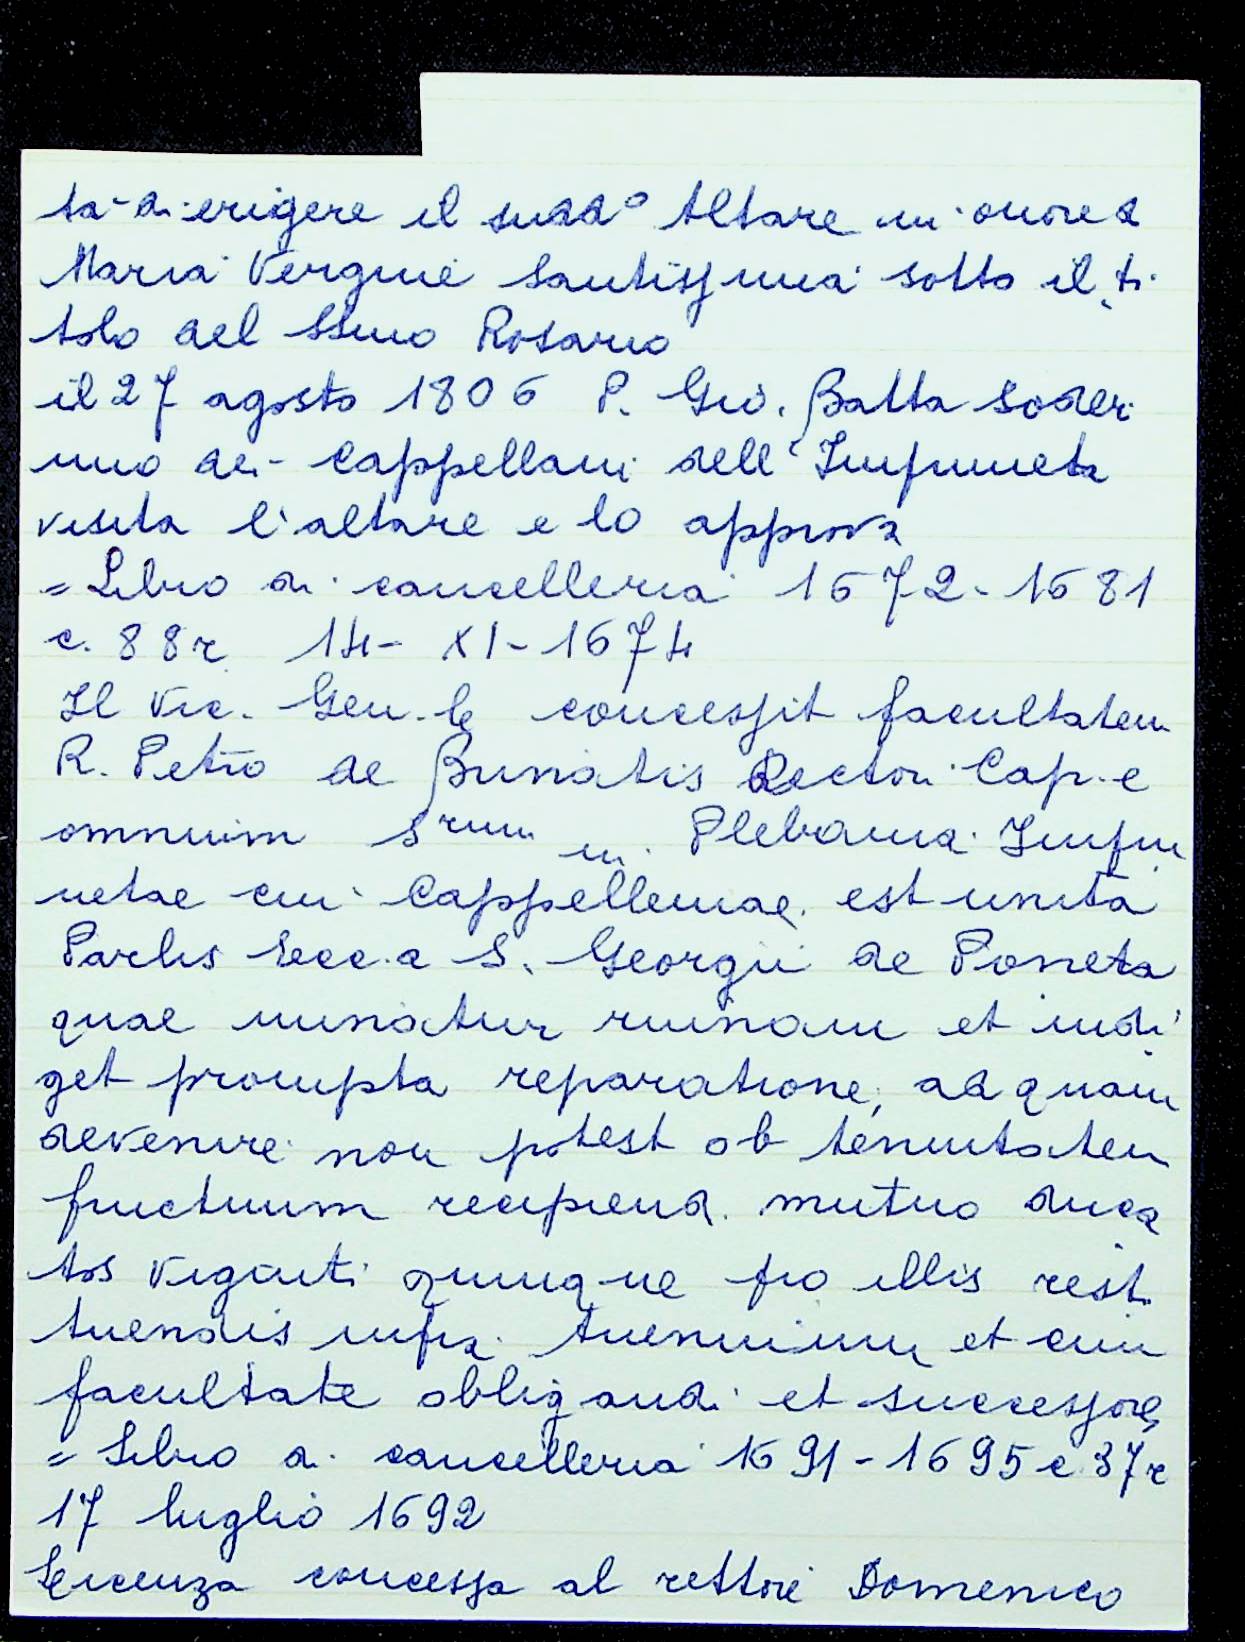 ta-di erigere il sudd° Altare in onore d
Maria Vergine Santissima sotto il ti
tolo del SSmo Rosario
il 27 agosto 1806 P. Gio. Batta Soderi
uno dei cappellani dell'Impruneta
visita l'altare e lo approva
= Libro di cancelleria 1672-1681
c. 88r 14-XI-1674
Il Vic. Gen.le concessit facultatem
R. Petro de Bunatis Rectori Cap.e
omnium Srum in Plebania Impru
netae cui Cappellemae est unita
Parlis Ecc.a S. Georgii de Poneta
quae minatur ruinam et indi
get prompta reparatione, ad quam
devenire non potest ob tenuitatem
fructuum recipiend. mutuo duca
tos viginti quinque pro illis resti
tuendis infra triennium et cum
facultate obligandi et successores
= Libro di cancelleria 1691-1695 c. 37r
17 luglio 1692
Licenza concessa al rettore Domenico